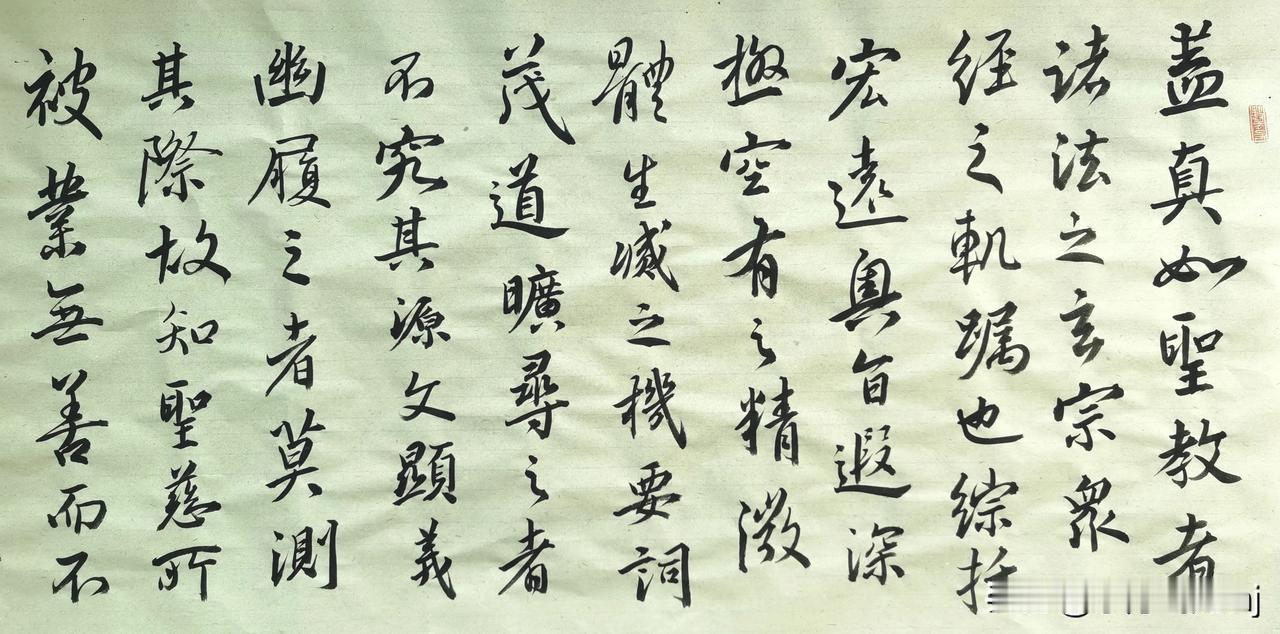 盖真如聖教者
诸法之玄宗衆
经之軌躅也綜括
宏遠奥旨遐深
極空有之精微
體生滅之機要詞
茂道曠尋之者
不究其源文顯義
幽履之者莫測
其際故知聖慈所
被業無善而不